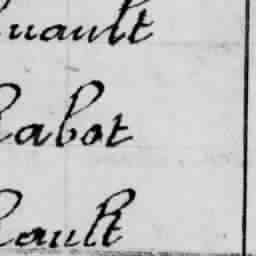 uault
Rabot
Rault